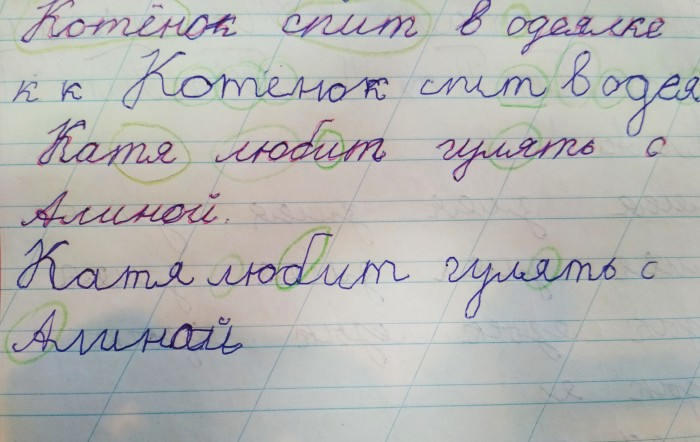 Котёнок спит в одеялке
к к Котенок спит в одея
Катя любит гулять с
Алиной.
Катя любит гулять с
Алиной